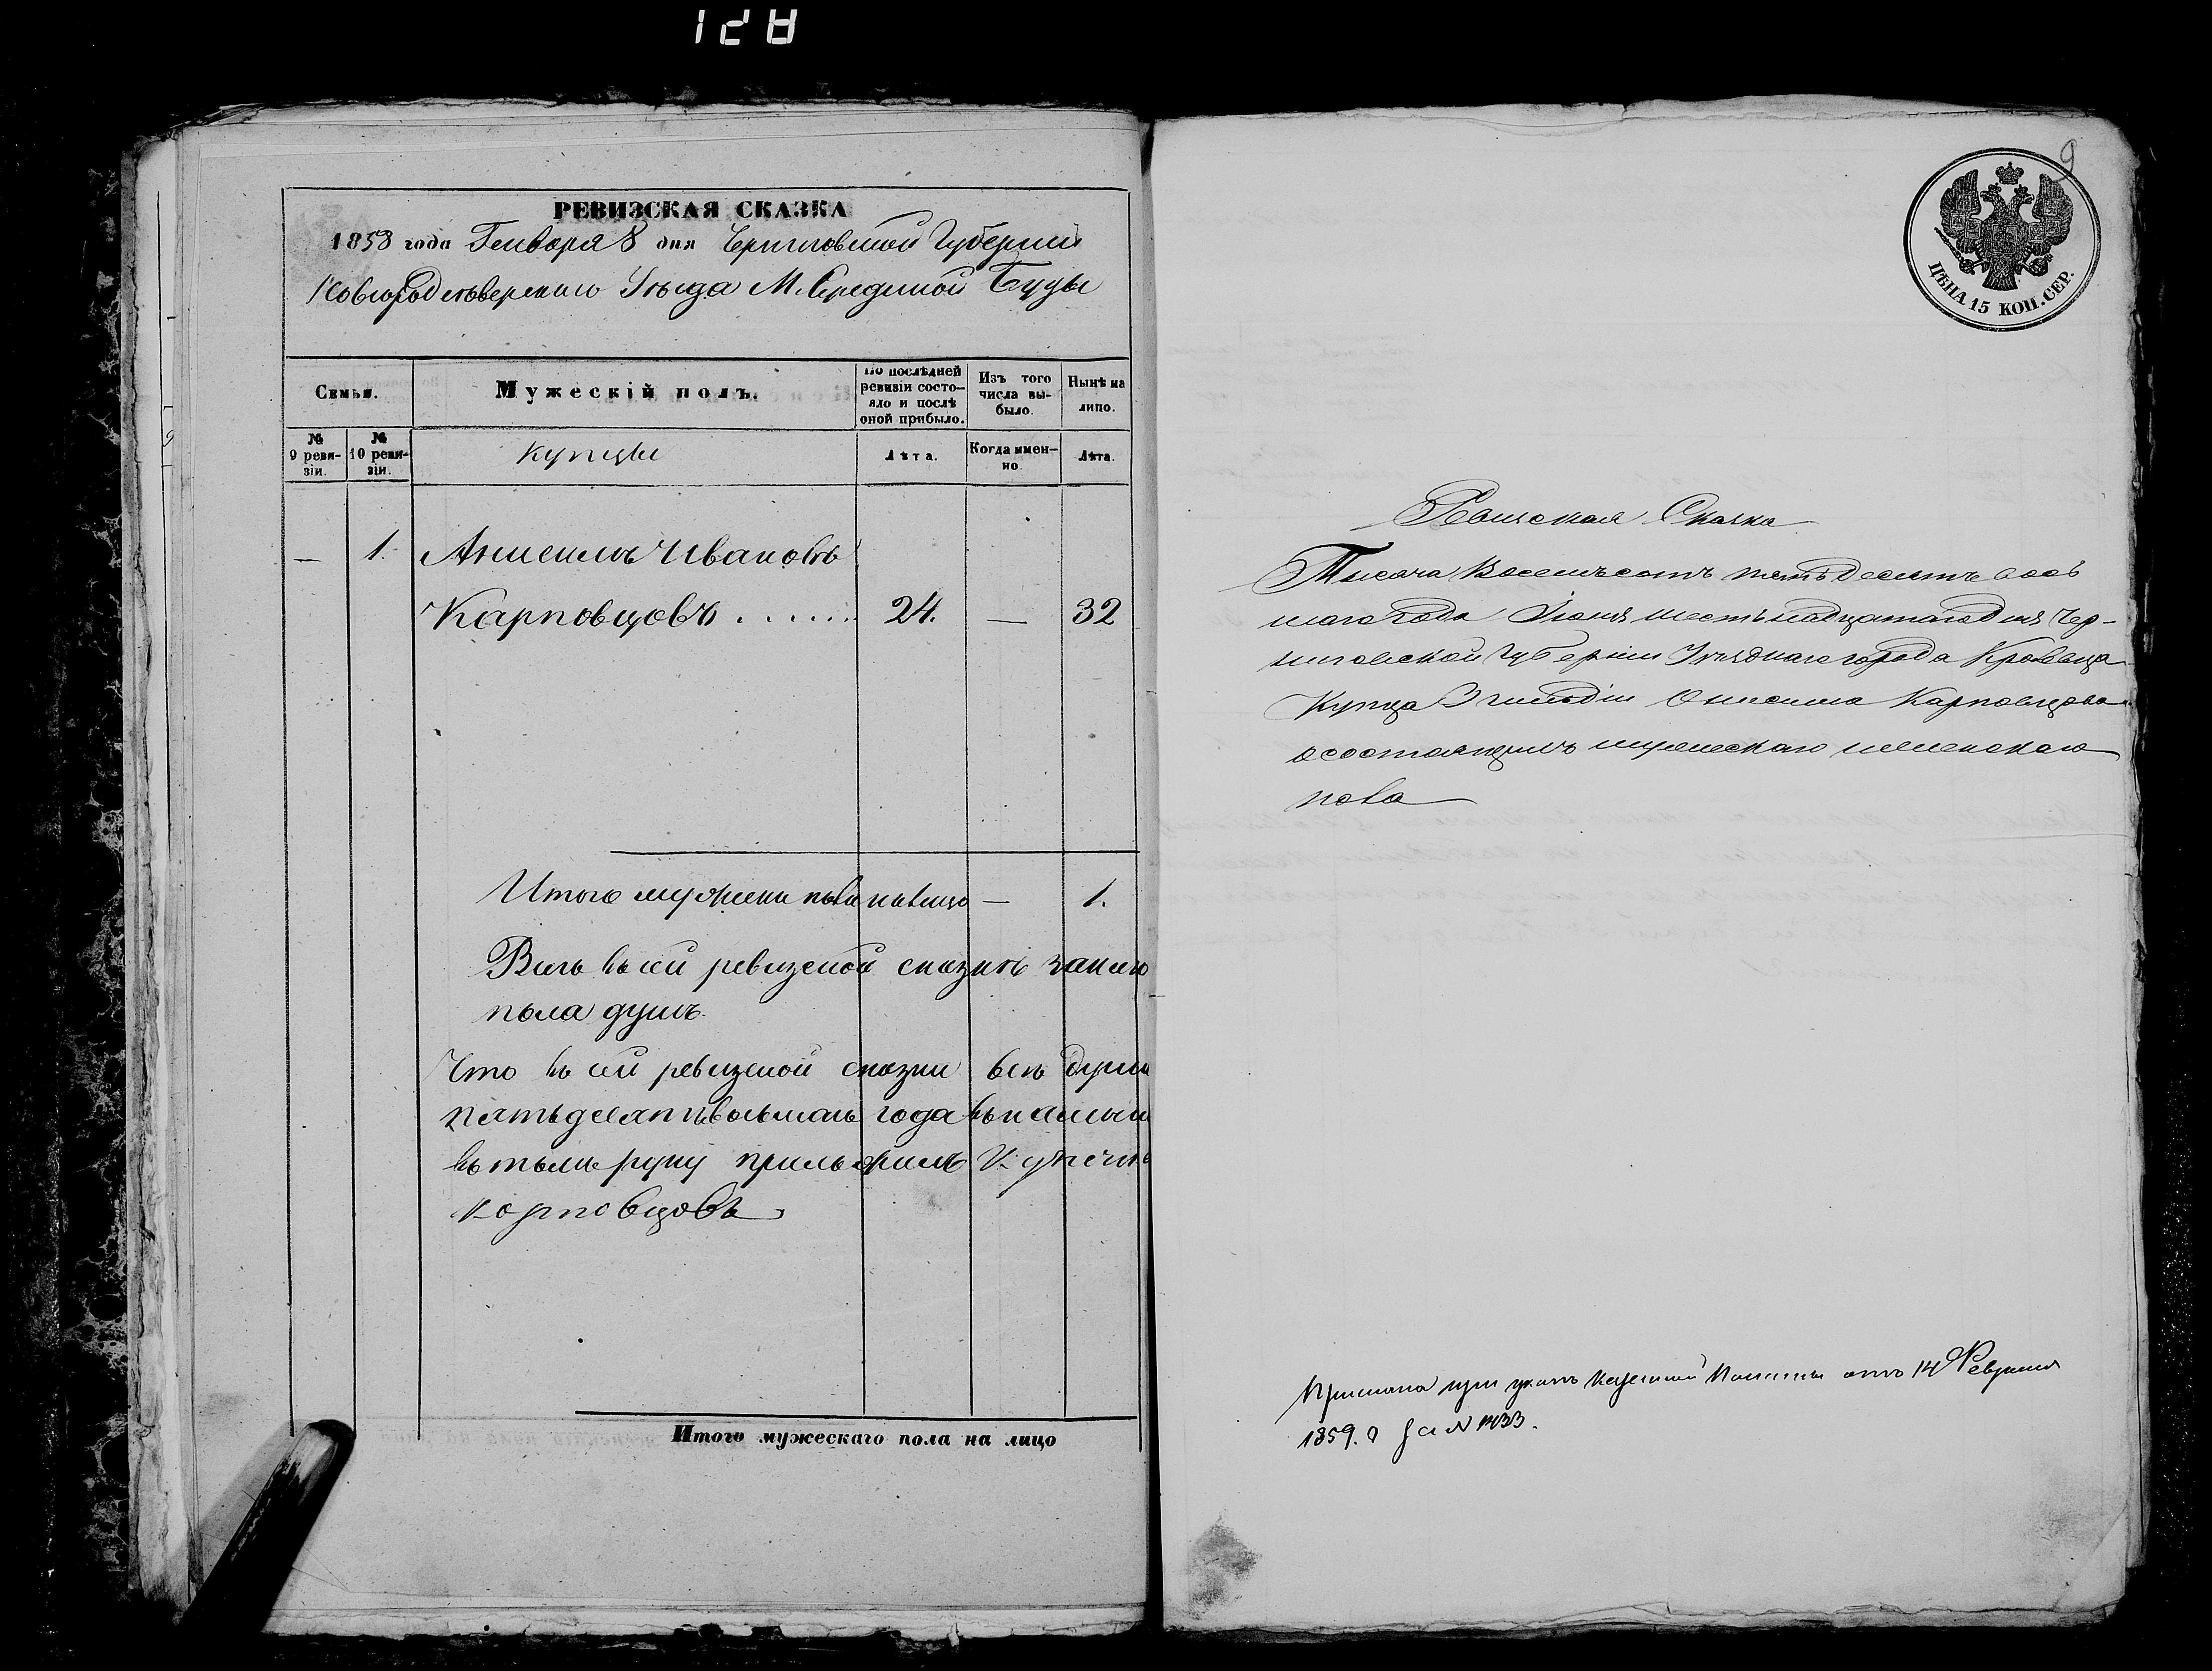 128
РЕВИЗСКАЯ СКАЗКА
1858 года Генваря 8 дня Черниговской Губернии
Новгородсѣверскаго Уѣзда М. Срединой Буды
Семьи.
Мужескій полъ.
По послѣдней ревизіи состо-
яло и послѣ
оной прибыло.
Изъ того
числа вы-
было.
Нынѣ на
лицо.
№
9 реви-
зіи.
№
10 реви-
зіи.
Купцы
Лѣта.
Когда имен-
но.
Лѣта.
— 1. Анисимъ Ивановъ
Карповцовъ . . . . . . 24. — 32
Итого мужска пола на лицо — 1.
Всего въ сей ревизской сказкѣ
пола душъ.
Что въ сей ревизской сказки всѣ души
пятьдесятъ восьмаго года
въ томъ руку приложилъ Купечи
Карповцовъ
Итого мужескаго пола на лицо
9
ЦѢНА 15 КОП. СЕР.
Ревизская Сказка
Тысяча восемьсотъ пятьдесятъ вось
маго года Іюня шестьнадцатаго дня Чер-
ниговской Губерніи Уѣзднаго города Кролевца
Купца 3 гильдіи Онисима Карповцова
о состоящихъ мужескаго и женскаго
пола
Прислана при указѣ Казенной Палаты отъ 14 Февраля
1859. г за N 1433.